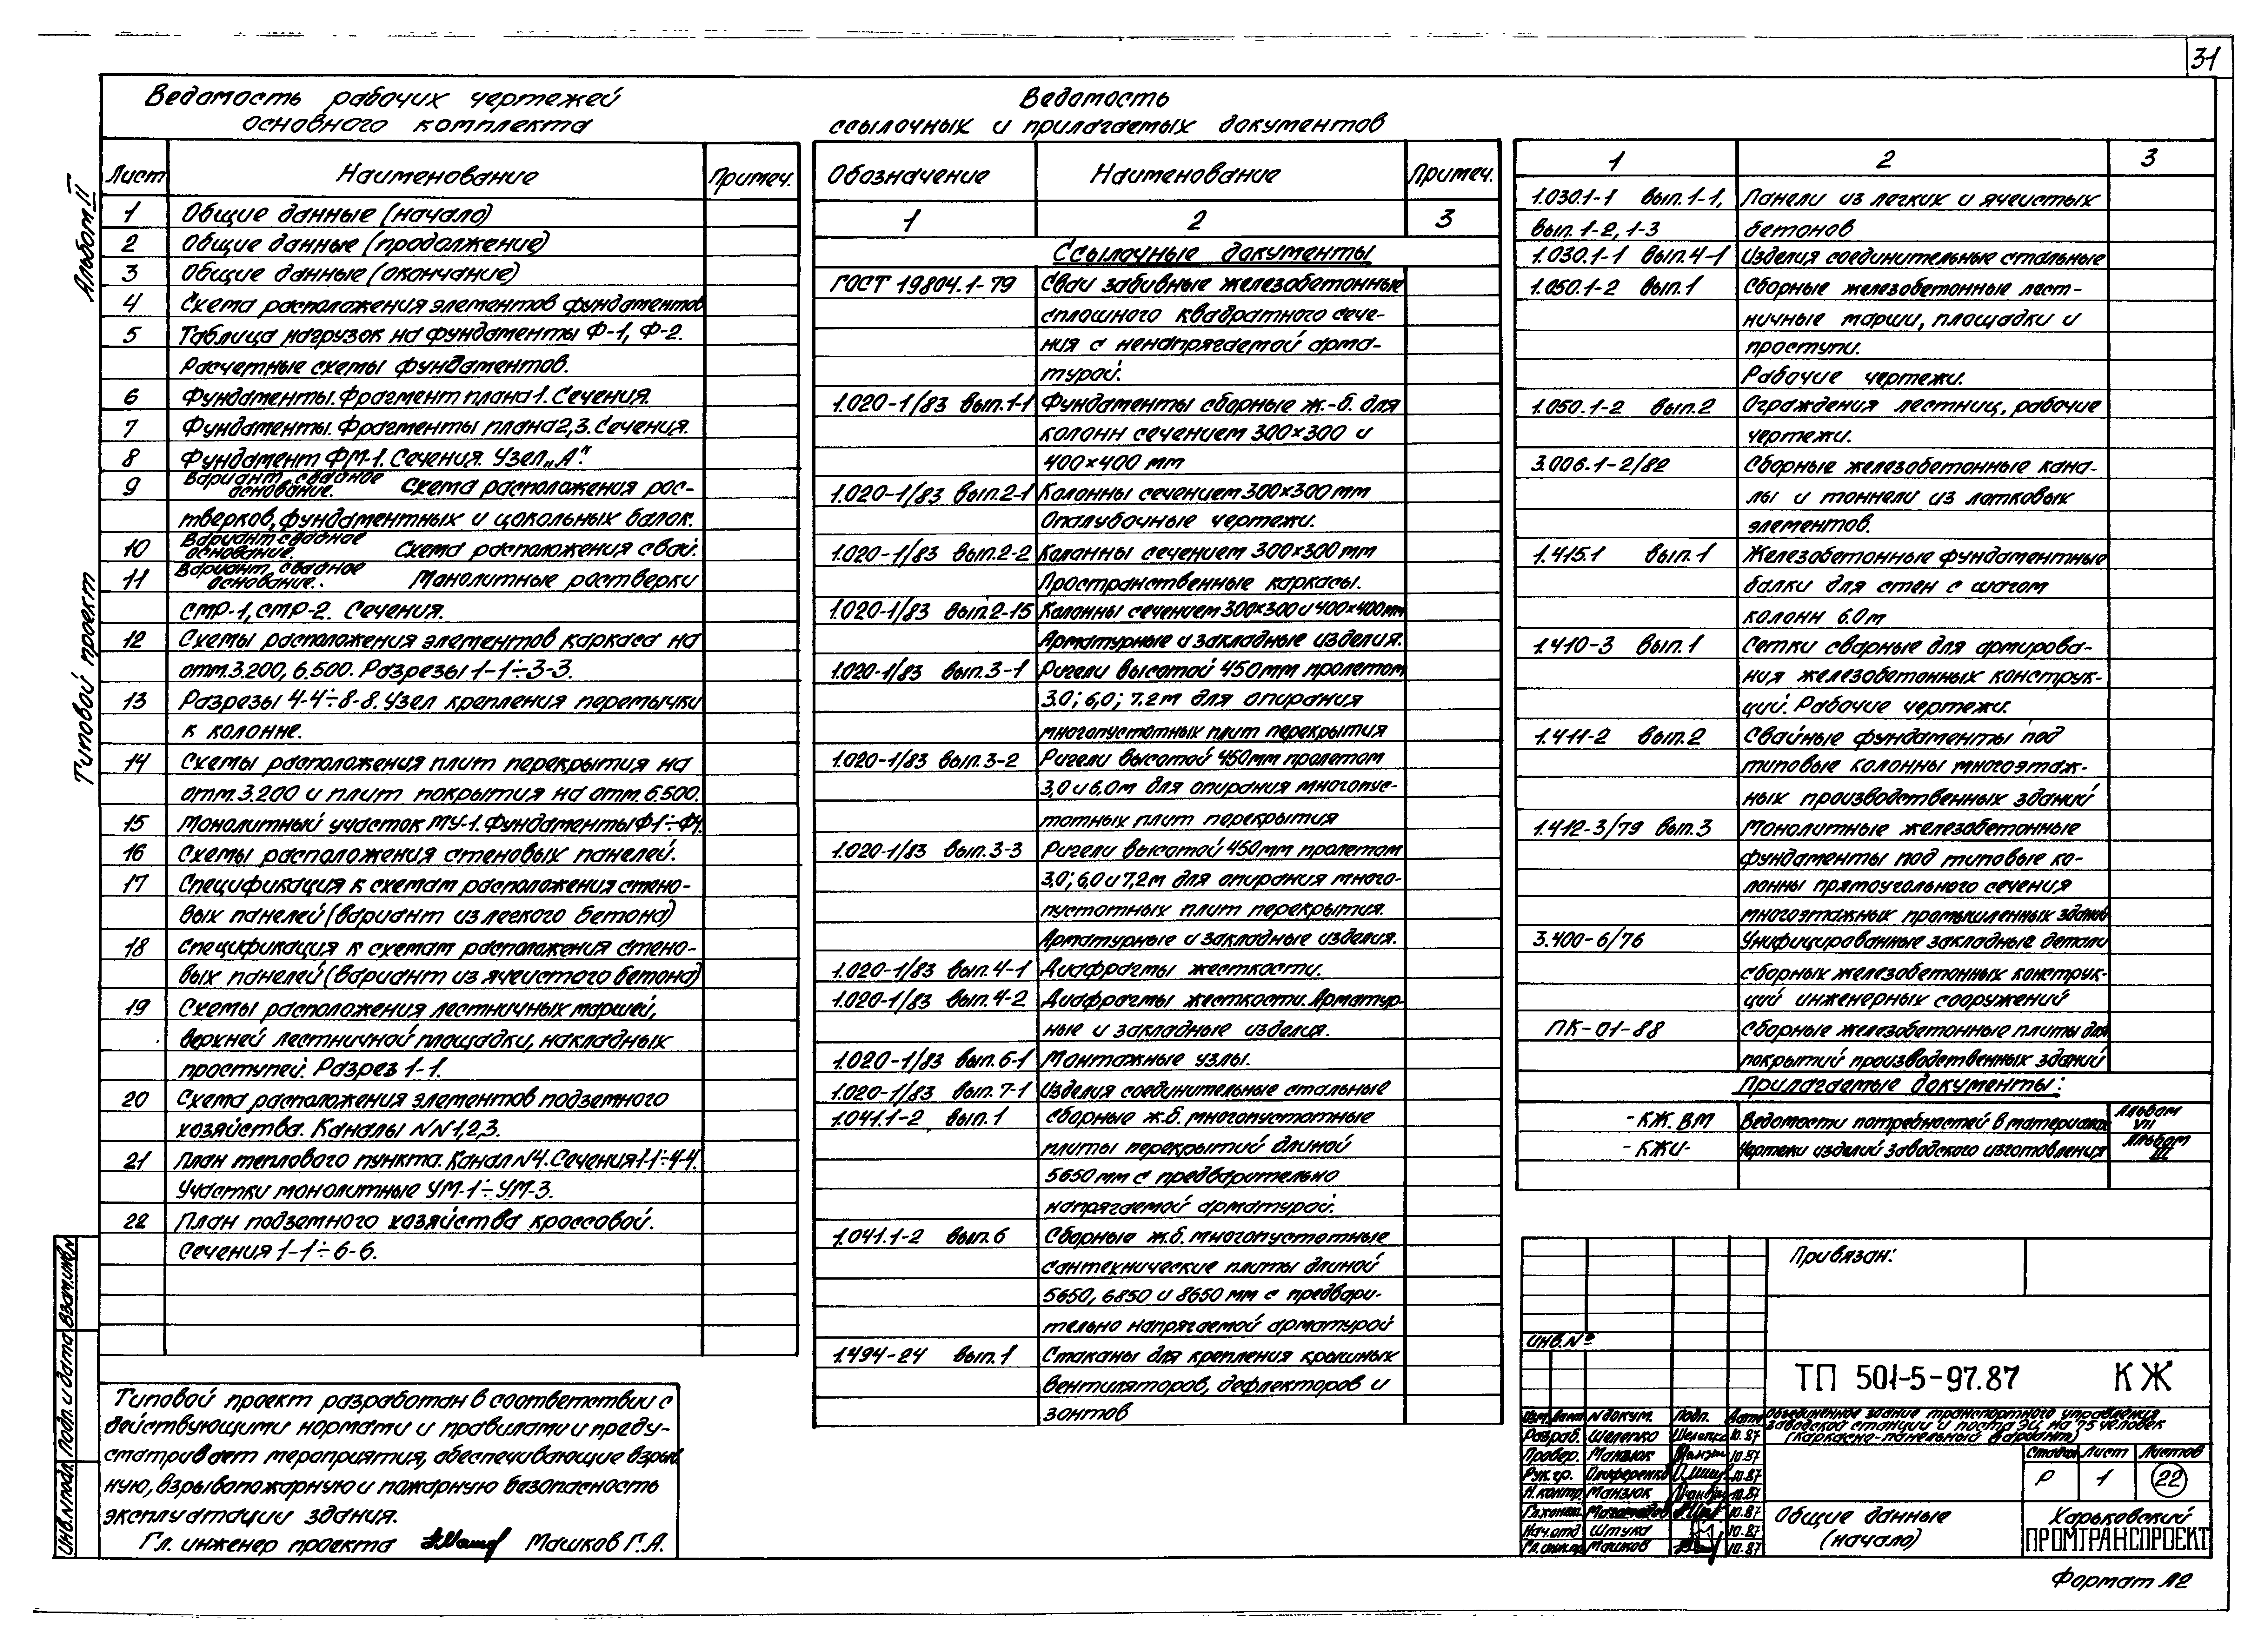 31
Альбом II
Типовой проект
Ведомость рабочих чертежей
основного комплекта
Лист Наименование Примеч.
1 Общие данные (начало)
2 Общие данные (продолжение)
3 Общие данные (окончание)
4 Схема расположения элементов фундаментов
5 Таблица нагрузок на фундаменты Ф-1, Ф-2.
Расчетные схемы фундаментов.
6 Фундаменты. Фрагмент плана 1. Сечения.
7 Фундаменты. Фрагменты плана 2,3. Сечения.
8 Фундамент ФМ-1. Сечения. Узел „А".
9 Вариант свайное основание. Схема расположения рос-
тверков, фундаментных и цокольных балок.
10 Вариант свайное основание. Схема расположения свай.
11 Вариант свайное основание. Монолитные ростверки
СМР-1, СМР-2. Сечения.
12 Схемы расположения элементов каркаса на
отм. 3.200, 6.500. Разрезы 1-1÷3-3.
13 Разрезы 4-4÷8-8. Узел крепления перемычки
к колонне.
14 Схемы расположения плит перекрытия на
отм. 3.200 и плит покрытия на отм. 6.500.
15 Монолитный участок МУ-1. Фундаменты Ф1÷Ф4.
16 Схемы расположения стеновых панелей.
17 Спецификация к схемам расположения стено-
вых панелей (вариант из легкого бетона)
18 Спецификация к схемам расположения стено-
вых панелей (вариант из ячеистого бетона)
19 Схемы расположения лестничных маршей,
верхней лестничной площадки, накладных
проступей. Разрез 1-1.
20 Схема расположения элементов подземного
хозяйства. Каналы NN 1,2,3.
21 План теплового пункта. Канал N4. Сечения 1-1÷4-4.
Участки монолитные УМ-1÷УМ-3.
22 План подземного хозяйства кроссовой.
Сечения 1-1÷6-6.
Типовой проект разработан в соответствии с
действующими нормами и правилами и преду-
сматривает мероприятия, обеспечивающие взрыв-
ную, взрывопожарную и пожарную безопасность
эксплуатации здания.
Гл. инженер проекта Машков Г.А.
Ведомость
ссылочных и прилагаемых документов
Обозначение Наименование Примеч.
1 2 3
Ссылочные документы
ГОСТ 19804.1-79 Сваи забивные железобетонные
сплошного квадратного сече-
ния с ненапрягаемой арма-
турой.
1.020-1/83 вып.1-1 Фундаменты сборные ж.-б. для
колонн сечением 300×300 и
400×400 мм
1.020-1/83 вып.2-1 Колонны сечением 300×300 мм
Опалубочные чертежи.
1.020-1/83 вып.2-2 Колонны сечением 300×300 мм
Пространственные каркасы.
1.020-1/83 вып.2-15 Колонны сечением 300×300 и 400×400 мм
Арматурные и закладные изделия.
1.020-1/83 вып.3-1 Ригели высотой 450мм пролетом
3.0; 6,0; 7.2м для опирания
многопустотных плит перекрытия
1.020-1/83 вып.3-2 Ригели высотой 450мм пролетом
3,0 и 6.0м для опирания многопус-
тотных плит перекрытия
1.020-1/83 вып.3-3 Ригели высотой 450мм пролетом
3.0; 6,0 и 7,2м для опирания много-
пустотных плит перекрытия.
Арматурные и закладные изделия.
1.020-1/83 вып.4-1 Диафрагмы жесткости.
1.020-1/83 вып.4-2 Диафрагмы жесткости. Арматур-
ные и закладные изделия.
1.020-1/83 вып.6-1 Монтажные узлы.
1.020-1/83 вып.7-1 Изделия соединительные стальные
1.041.1-2 вып.1 Сборные ж.б. многопустотные
плиты перекрытий длиной
5650 мм с предварительно
напрягаемой арматурой.
1.041.1-2 вып.6 Сборные ж.б. многопустотные
сантехнические плиты длиной
5650, 6850 и 8650 мм с предвари-
тельно напрягаемой арматурой
1.494-24 вып.1 Стаканы для крепления крышных
вентиляторов, дефлекторов и
зонтов
1 2 3
1.030.1-1 вып.1-1, Панели из легких и ячеистых
вып.1-2, 1-3 бетонов
1.030.1-1 вып.4-1 Изделия соединительные стальные
1.050.1-2 вып.1 Сборные железобетонные лест-
ничные марши, площадки и
проступи.
Рабочие чертежи.
1.050.1-2 вып.2 Ограждения лестниц, рабочие
чертежи.
3.006.1-2/82 Сборные железобетонные кана-
лы и тоннели из лотковых
элементов.
1.415.1 вып.1 Железобетонные фундаментные
балки для стен с шагом
колонн 6.0м
1.410-3 вып.1 Сетки сварные для армирова-
ния железобетонных конструк-
ций. Рабочие чертежи.
1.411-2 вып.2 Свайные фундаменты под
типовые колонны многоэтаж-
ных производственных зданий
1.412-3/79 вып.3 Монолитные железобетонные
фундаменты под типовые ко-
лонны прямоугольного сечения
многоэтажных промышленных зданий
3.400-6/76 Унифицированные закладные детали
сборных железобетонных конструк-
ций инженерных сооружений
ПК-01-88 Сборные железобетонные плиты для
покрытий производственных зданий
Прилагаемые документы:
-КЖ.ВМ Ведомости потребностей в материалах Альбом VII
-КЖИ- Чертежи изделий заводского изготовления Альбом III
Привязан:
Инв.№
ТП 501-5-97.87 КЖ
Изм. Лист N докум. Подп. Дата
Объединенное здание транспортного управления
заводской станции и поста ЭЦ на 75 человек
(каркасно-панельный вариант)
Разраб. Шелепко Шелепко 10.87
Провер. Манзюк 10.87
Рук.гр. Олиференко 10.87
Н.контр. Манзюк 10.87
Гл.констр. 10.87
Нач.отд Штука 10.87
Гл.инж.пр. Машков 10.87
Стадия Лист Листов
Р 1 22
Общие данные
(начало)
Харьковский
ПРОМТРАНСПРОЕКТ
Формат А2
Инв.N подл. Подп. и дата Взам.инв.N